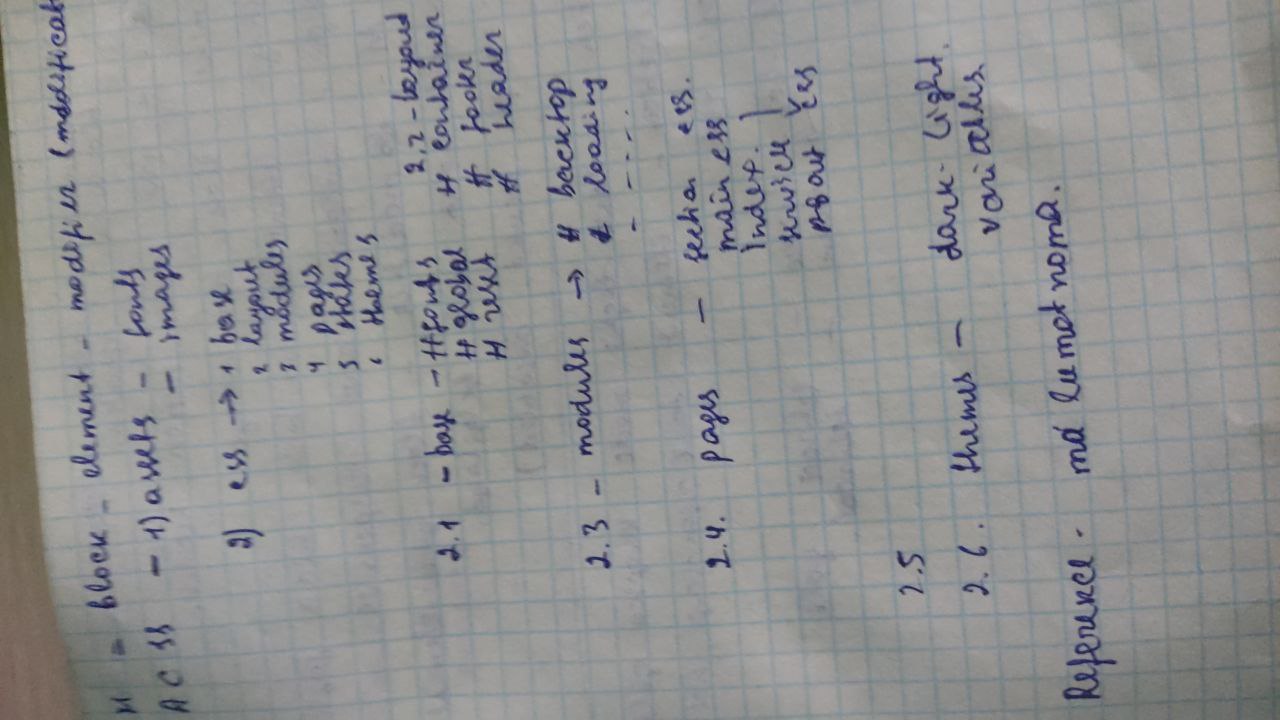 M = block - element - modifier (modificat
ACSS - 1) assets - fonts
- images
2) css → 1 base
2 layout
3 modules
4 pages
5 states
6 themes
2.1 - base - # fonts
# global
# reset
2.2 - layout
# container
# footer
# header
2.3 - modules → # backtop
# loading
- ----
2.4. pages — section css.
main css
index.
service
about css
2.5
2.6. themes — dark - light.
variables
Reference -